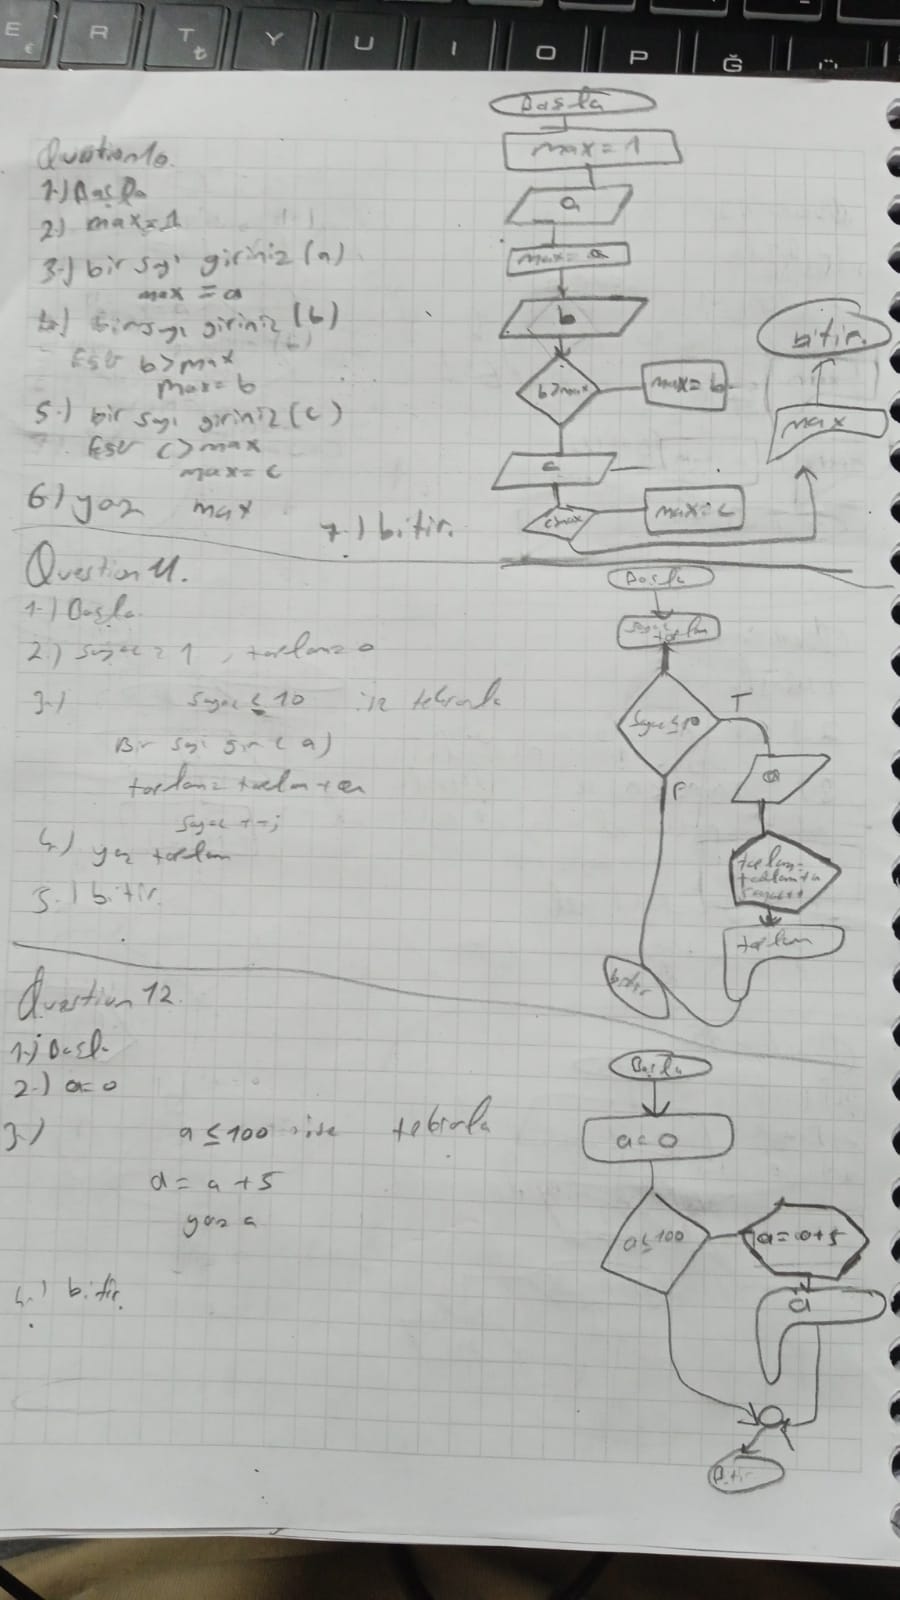 E
R
T
Y
U
I
O
P
Ğ
Ü
Question 10.
1-) Başla
2.) max=1
3.) bir sayı giriniz (a)
max = a
4.) bir sayı giriniz (b)
Eğer b>max
max=b
5.) bir sayı giriniz (c)
Eğer c>max
max=c
6.) yaz max
7.) bitir.
Başla
max=1
a
max=a
b
b>max
max=b
c
c>max
max=c
max
bitir.
Question 11.
1-) Başla
2.) sayac=1, toplam=0
3-) sayac≤10 ise tekrarla
Bir sayi gir (a)
toplam=toplam+a
sayac++;
4.) yaz toplam
5.) bitir.
Başla
sayac
toplam
Sayac≤10
T
F
a
toplam=
toplam+a
sayac++
toplam
bitir
Question 12.
1-) Başla
2-) a=0
3-) a≤100 ise tekrarla
a = a+5
yaz a
4.) bitir.
Başla
a=0
a≤100
a=a+5
a
Bitir